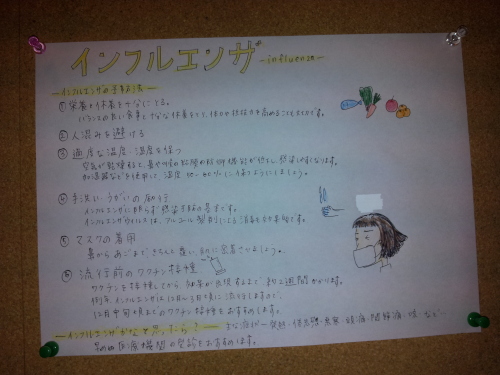 インフルエンザ -influenza-
-インフルエンザの予防法-
① 栄養と休養を十分にとる。
バランスの良い食事と十分な休養をとり、体力や抵抗力を高めることも大切です。
② 人混みを避ける
③ 適度な温度、湿度を保つ
空気が乾燥すると、鼻や喉の粘膜の防御機能が低下し、感染しやすくなります。
加湿器などを使用して、湿度
に保つようにしましょう。
④ 手洗い・うがいの励行
インフルエンザに限らず感染予防の基本です。
インフルエンザウイルスは、アルコール製剤による消毒も効果的です。
⑤ マスクの着用
鼻からあごまできちんと覆い、顔に密着させましょう。
⑥ 流行前のワクチン接種
ワクチンを接種してから、効果が出現するまで、約2週間かかります。
例年インフルエンザは12月～3月頃に流行しますので、
12月中旬までのワクチン接種をおすすめします。
-インフルエンザかな?と思ったら?-
主な症状…突然
・倦怠感・悪寒・頭痛・関節痛・咳・など…
早めの医療機関の受診をおすすめします。